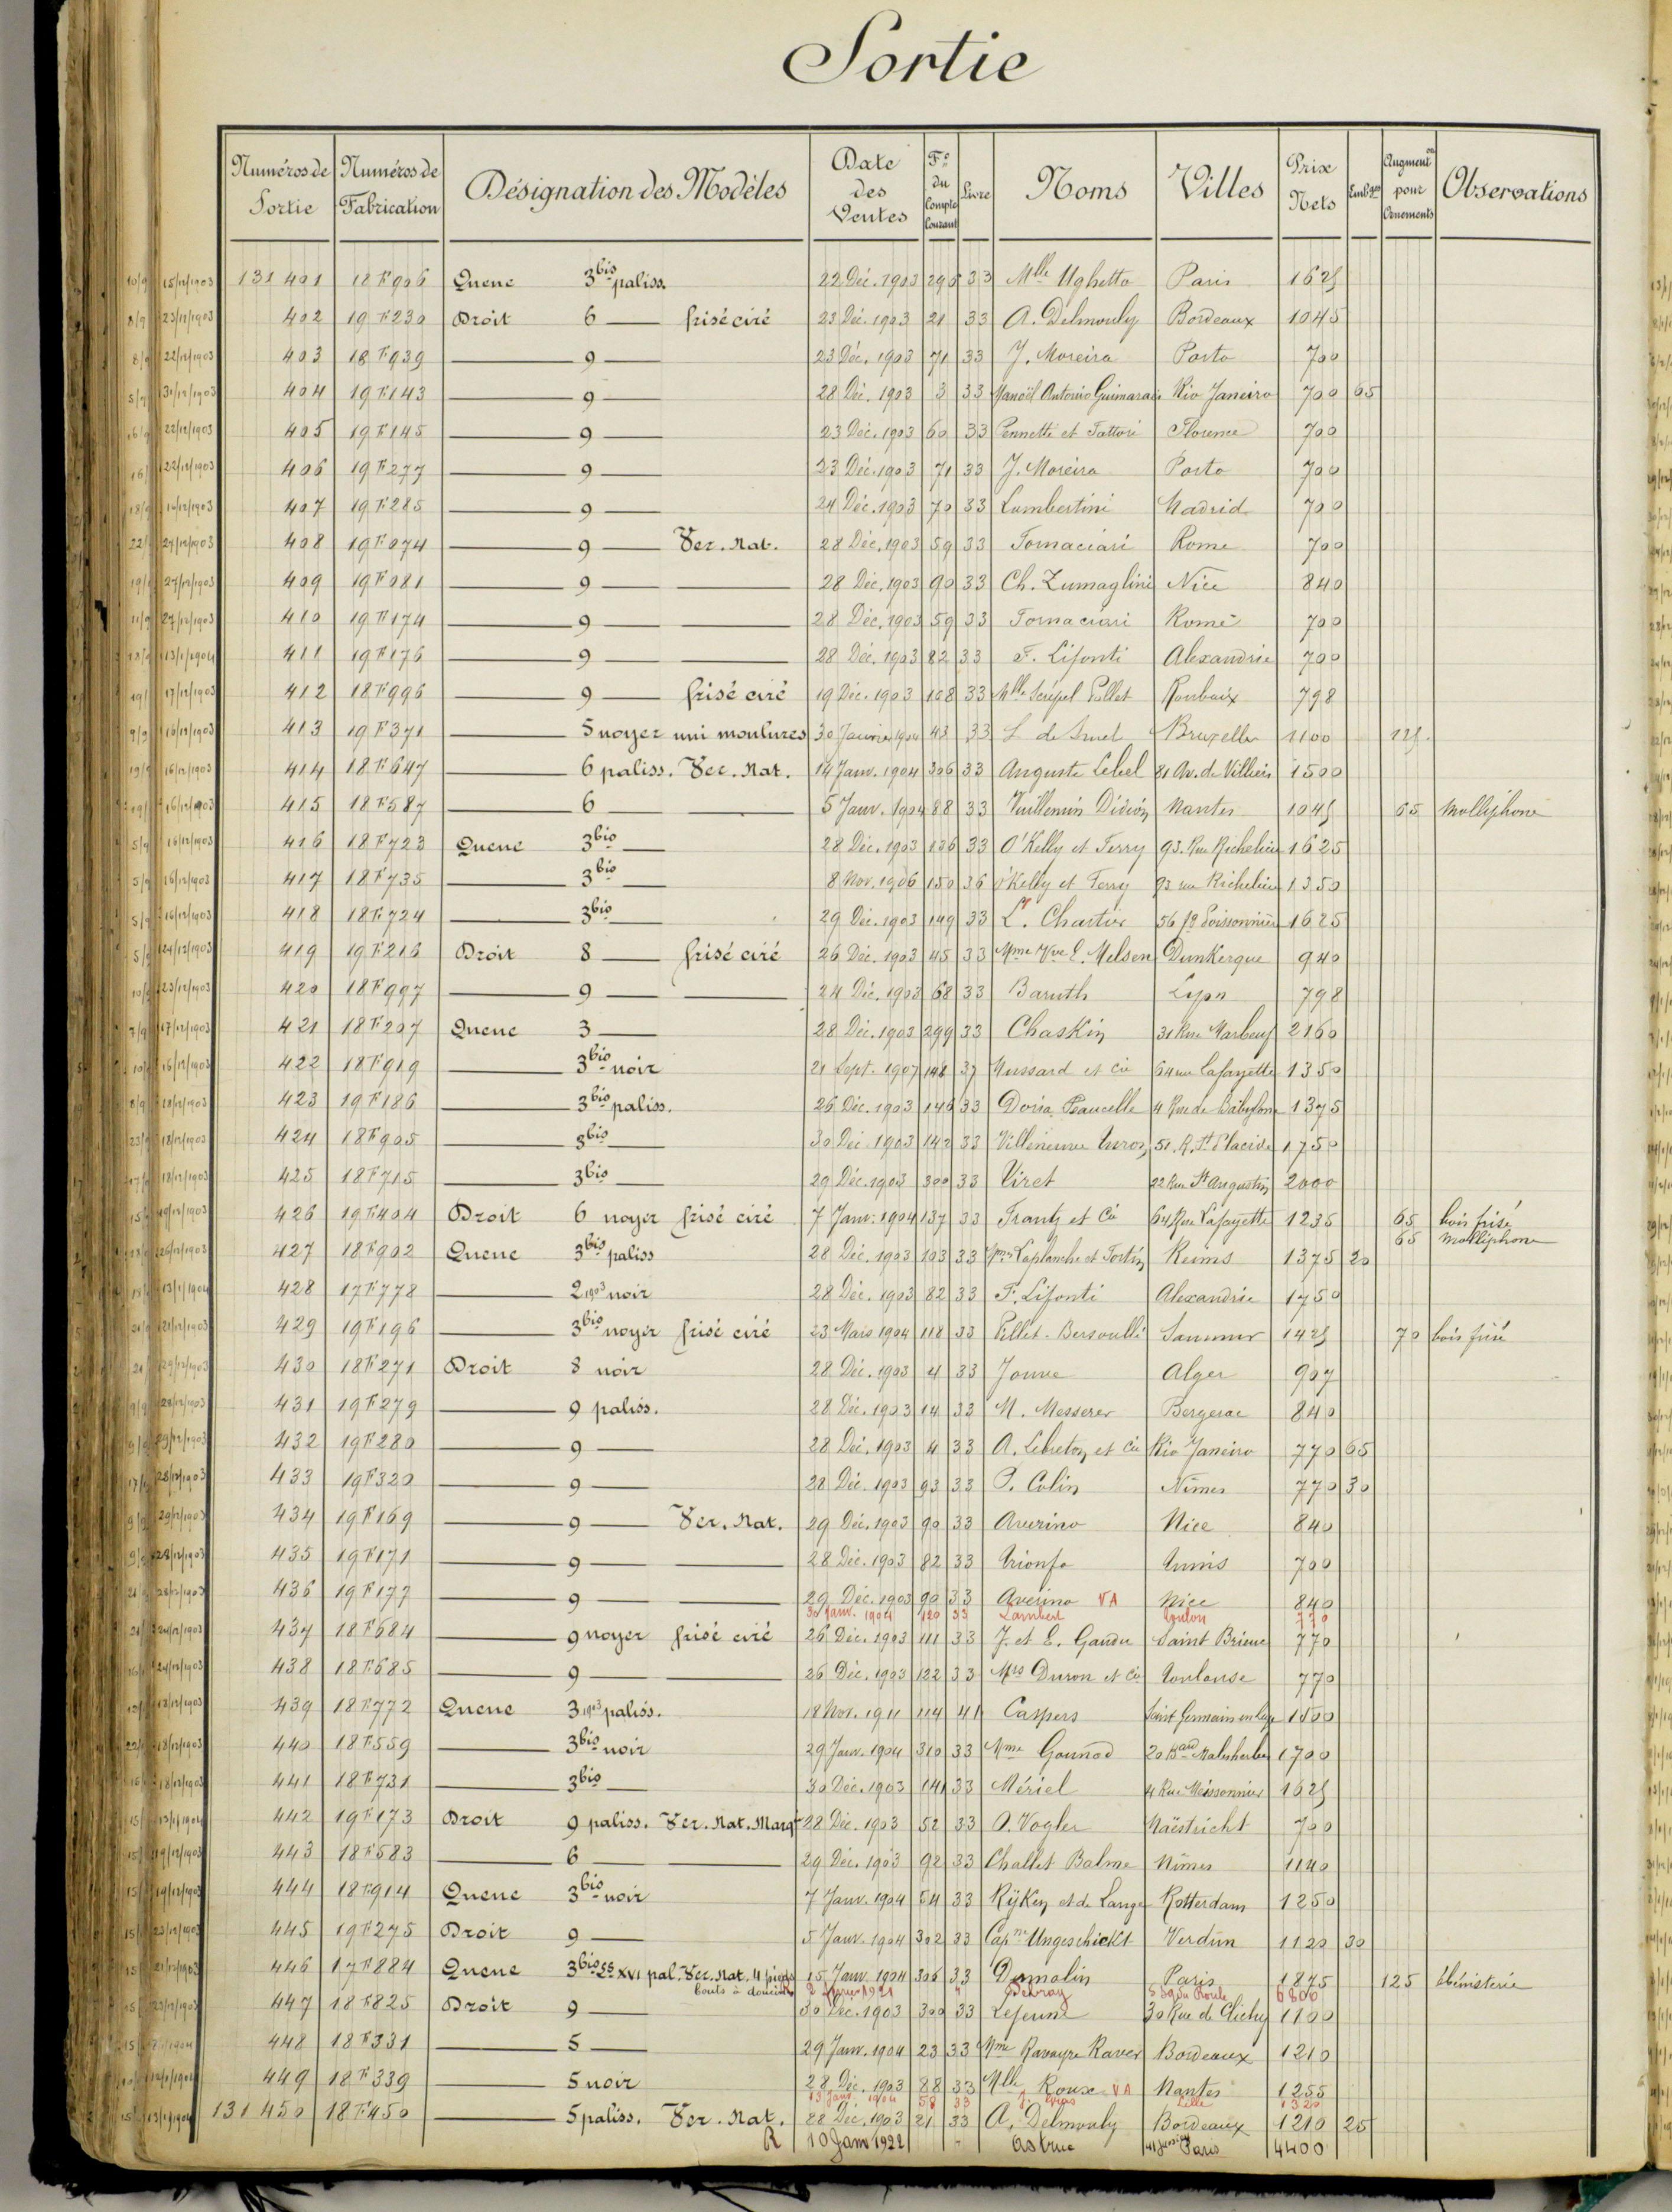 Sortie
Numéros de Sortie | Numéros de Fabrication | Désignation des Modèles | Date des Ventes | Fo. du Compte Courant | Livre | Noms | Villes | Prix Nets | Emb.ges | Augment.on pour Ornements | Observations
15/12/1903 131 401 18F906 Queue 3bis paliss. 22 Déc. 1903 295 33 Mlle Ughetto Paris 1625
23/12/1903 402 19F230 Droit 6 — frisé ciré 23 Déc. 1903 21 33 A. Delmouly Bordeaux 1045
22/12/1903 403 18F939 — 9 — 23 Déc. 1903 71 33 J. Moreira Porto 700
31/12/1903 404 19F143 — 9 — 28 Déc. 1903 3 33 Manoël Antonio Guimaraes Rio Janeiro 700 65
22/12/1903 405 19F145 — 9 — 23 Déc. 1903 60 33 Pennetti et Fattori Florence 700
22/12/1903 406 19F277 — 9 — 23 Déc. 1903 71 33 J. Moreira Porto 700
407 19F285 — 9 — 24 Déc. 1903 70 33 Lambertini Madrid 700
27/12/1903 408 19F074 — 9 — Ver. Nat. 28 Déc. 1903 59 33 Fornaciari Rome 700
27/12/1903 409 19F081 — 9 — — 28 Déc. 1903 90 33 Ch. Zumaglini Nice 840
27/12/1903 410 19F174 — 9 — — 28 Déc. 1903 59 33 Fornaciari Rome 700
13/1/1904 411 19F176 — 9 — — 28 Déc. 1903 82 33 F. Lifonti Alexandrie 700
17/12/1903 412 18F996 — 9 — frisé ciré 19 Déc. 1903 108 33 Mlle Scrépel Pollet Roubaix 798
16/12/1903 413 19F371 — 5 noyer uni moulures 30 Janvier 1904 43 33 L de Smet Bruxelles 1100 125
16/12/1903 414 18F647 — 6 paliss. Ver. Nat. 14 Janv. 1904 306 33 Auguste Lebel 81 Av. de Villiers 1500
16/12/1903 415 18F587 — 6 — — 5 Janv. 1904 88 33 Vuillemin Didion Nantes 1045 65 Molliphone
16/12/1903 416 18F723 Queue 3bis — 28 Déc. 1903 136 33 O'Kelly et Ferry 93. Rue Richelieu 1625
16/12/1903 417 18F735 — 3bis — 8 Nov. 1906 150 36 O'Kelly et Ferry 93 rue Richelieu 1350
16/12/1903 418 18F724 — 3bis — 29 Déc. 1903 149 33 L. Chartier 56 fg Poissonnière 1625
24/12/1903 419 19F216 Droit 8 — frisé ciré 26 Déc. 1903 45 33 Mme Vve E. Melsen Dunkerque 940
23/12/1903 420 18F997 — 9 — — 24 Déc. 1903 68 33 Baruth Lyon 798
17/12/1903 421 18F207 Queue 3 — 28 Déc. 1903 299 33 Chaskin 31 Rue Marbeuf 2160
16/12/1903 422 18F919 — 3bis noir 21 Sept. 1907 148 37 Mussard et Cie 64 rue Lafayette 1350
18/12/1903 423 19F186 — 3bis paliss. 26 Déc. 1903 146 33 Doria Peaucelle 4 Rue de Babylone 1375
18/12/1903 424 18F905 — 3bis — 30 Déc. 1903 142 33 Villeneuve 51. R. St Placide 1750
18/12/1903 425 18F715 — 3bis — 29 Déc. 1903 300 33 Viret 22 Rue St Augustin 2000
19/12/1903 426 19F404 Droit 6 noyer frisé ciré 7 Janv. 1904 137 33 Frantz et Cie 64 Rue Lafayette 1235 65 bois frisé
65 Molliphone
26/12/1903 427 18F902 Queue 3bis paliss 28 Déc. 1903 103 33 Mmes Laplanche et Fortin Reims 1375 20
13/1/1904 428 17F778 — 2 1903 noir 28 Déc. 1903 82 33 F. Lifonti Alexandrie 1750
21/12/1903 429 19F196 — 3bis noyer frisé ciré 23 Mars 1904 118 33 Pillet-Bersoullé Saumur 1425 70 bois frisé
29/12/1903 430 18F271 Droit 8 noir 28 Déc. 1903 4 33 Jouve Alger 907
28/12/1903 431 19F279 — 9 paliss. 28 Déc. 1903 14 33 M. Messerer Bergerac 840
29/12/1903 432 19F280 — 9 — 28 Déc. 1903 4 33 A. Lebreton et Cie Rio Janeiro 770 65
28/12/1903 433 19F320 — 9 — 28 Déc. 1903 93 33 P. Colin Nîmes 770 30
29/12/1903 434 19F169 — 9 — Ver. Nat. 29 Déc. 1903 90 33 Averino Nice 840
28/12/1903 435 19F171 — 9 — — 28 Déc. 1903 82 33 Trionfo Tunis 700
28/12/1903 436 19F177 — 9 — — 29 Déc. 1903 90 33 Averino VA Nice 840
30 Janv. 1904 120 33 Lambert Toulon 770
24/12/1903 437 18F684 — 9 noyer frisé ciré 26 Déc. 1903 111 33 J. et E. Gandu Saint Brieuc 770
24/12/1903 438 18F685 — 9 — — 26 Déc. 1903 122 33 Mrs Duron et Cie Toulouse 770
18/12/1903 439 18F772 Queue 3 1903 paliss. 18 Nov. 1911 114 41 Caspers Saint Germain en Laye 1500
18/12/1903 440 18F559 — 3bis noir 29 Janv. 1904 310 33 Mme Gounod 20 Bard Malesherbes 1700
18/12/1903 441 18F731 — 3bis — 30 Déc. 1903 141 33 Mériel 4 Rue Meissonnier 1625
13/1/1904 442 19F173 Droit 9 paliss. Ver. Nat. Marqt 28 Déc. 1903 52 33 A. Vogler Maëstricht 700
19/12/1903 443 18F583 — 6 — — 29 Déc. 1903 92 33 Challet Balme Nîmes 1140
19/12/1903 444 18F914 Queue 3bis noir 7 Janv. 1904 54 33 Rijken et de Lange Rotterdam 1250
23/12/1903 445 19F275 Droit 9 — 5 Janv. 1904 302 33 Capne Ungeschickt Verdun 1120 30
21/12/1903 446 17F884 Queue 3bis Ls XVI pal. Ver. Nat. 4 pieds 15 Janv. 1904 306 33 Dumolin Paris 1875 125 ébénisterie
bouts à doucine 1921 Devray 6800
23/12/1903 447 18F825 Droit 9 — 30 Déc. 1903 300 33 Lejeune 30 Rue de Clichy 1100
448 18F331 — 5 — 29 Janv. 1904 23 33 Mme Ravayre Raver Bordeaux 1210
449 18F339 — 5 noir 28 Déc. 1903 88 33 Mlle Roux VA Nantes 1255
13 Janv. 1904 58 33 Lille 1320
13/1/1904 131 450 18F450 — 5 paliss. Ver. Nat. 28 Déc. 1903 21 33 A. Delmouly Bordeaux 1210 25
R 10 Janv 1922 Astruc 41 Paris 4400